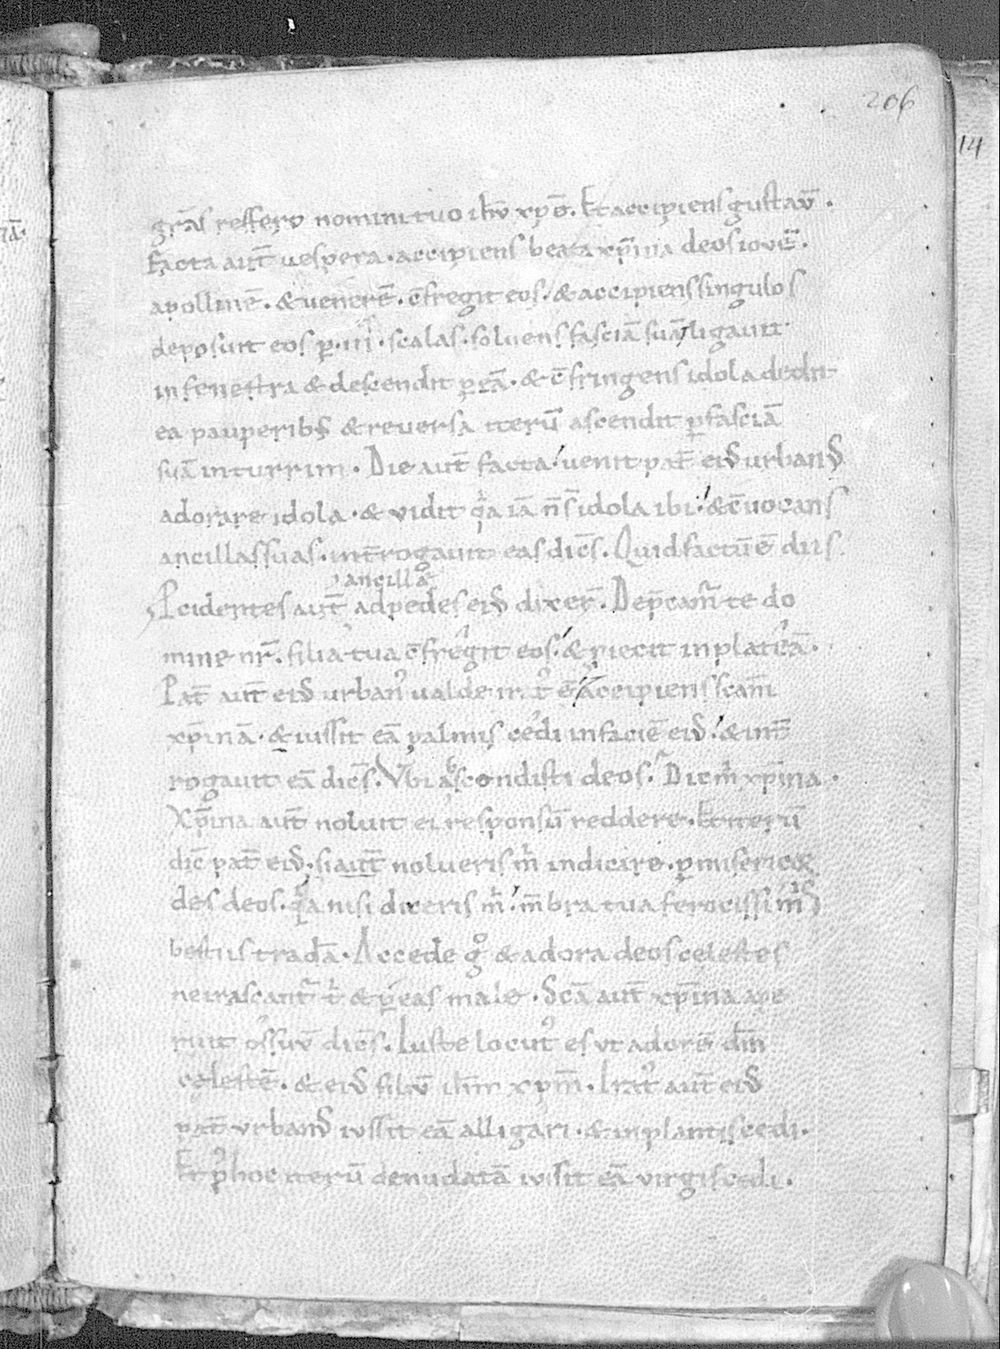 206
14
gr̄as reffero nomini tuo ihū xp̄o. Et accipiens gustaū.
Facta aut̄ uespera. accipiens beata xp̄ina deos iouē.
apollinē. & uenerē. c̄fregit eos. & accipiens singulos
deposuit eos p̄ .iii. scalas. soluens fasciā suā ligauit
in fenestra & descendit p̄ eā. & c̄fringens idola dedit
ea pauperib; & reuersa iterū ascendit p̄ fasciā
suā in turrim. Die aut̄ facta uenit pat̄ ei; urban;
adorare idola. & vidit qa iā n̄ s̄ idola ibi. & c̄uocans
ancillas suas. int̄rogauit eas dic̄s. Quid factū ē diis.
ancille
Icidentes aut̄ ad pedes ei; dixer̄. Dep̄camur te do
mine nr̄. filia tua c̄fregit eos. & piecit in plateā.
Pat̄ aut̄ ei; urban' ualde irat' ē. Accipiens scam̄
xp̄inā. & iussit eā palmis cedi in faciē ei;. & int̄
rogauit eā dic̄s. Vbi abscondisti deos. Dic m̄ xp̄ina.
Xp̄ina aut̄ noluit ei responsū reddere. Et iterū
dic̄ pat̄ ei;. si aut̄ nolueris m̄ indicare.
des deos. qa nisi dixeris m̄. m̄bra tua ferocissimis
bestiis tradā. Accede go & adora deos celestes
ne irascant̄ t' & peas male. Sc̄a aut̄ xp̄ina ape
ruit os suū dic̄s. Iuste locut' es ut adorē dm̄
celestē. & ei; filiū ihm̄ xpm̄. Irat' aut̄ ei;
pat̄ urban; iussit eā alligari. & in plantis cedi.
Et p' hoc iterū denudatā iusit eā virgis cedi.